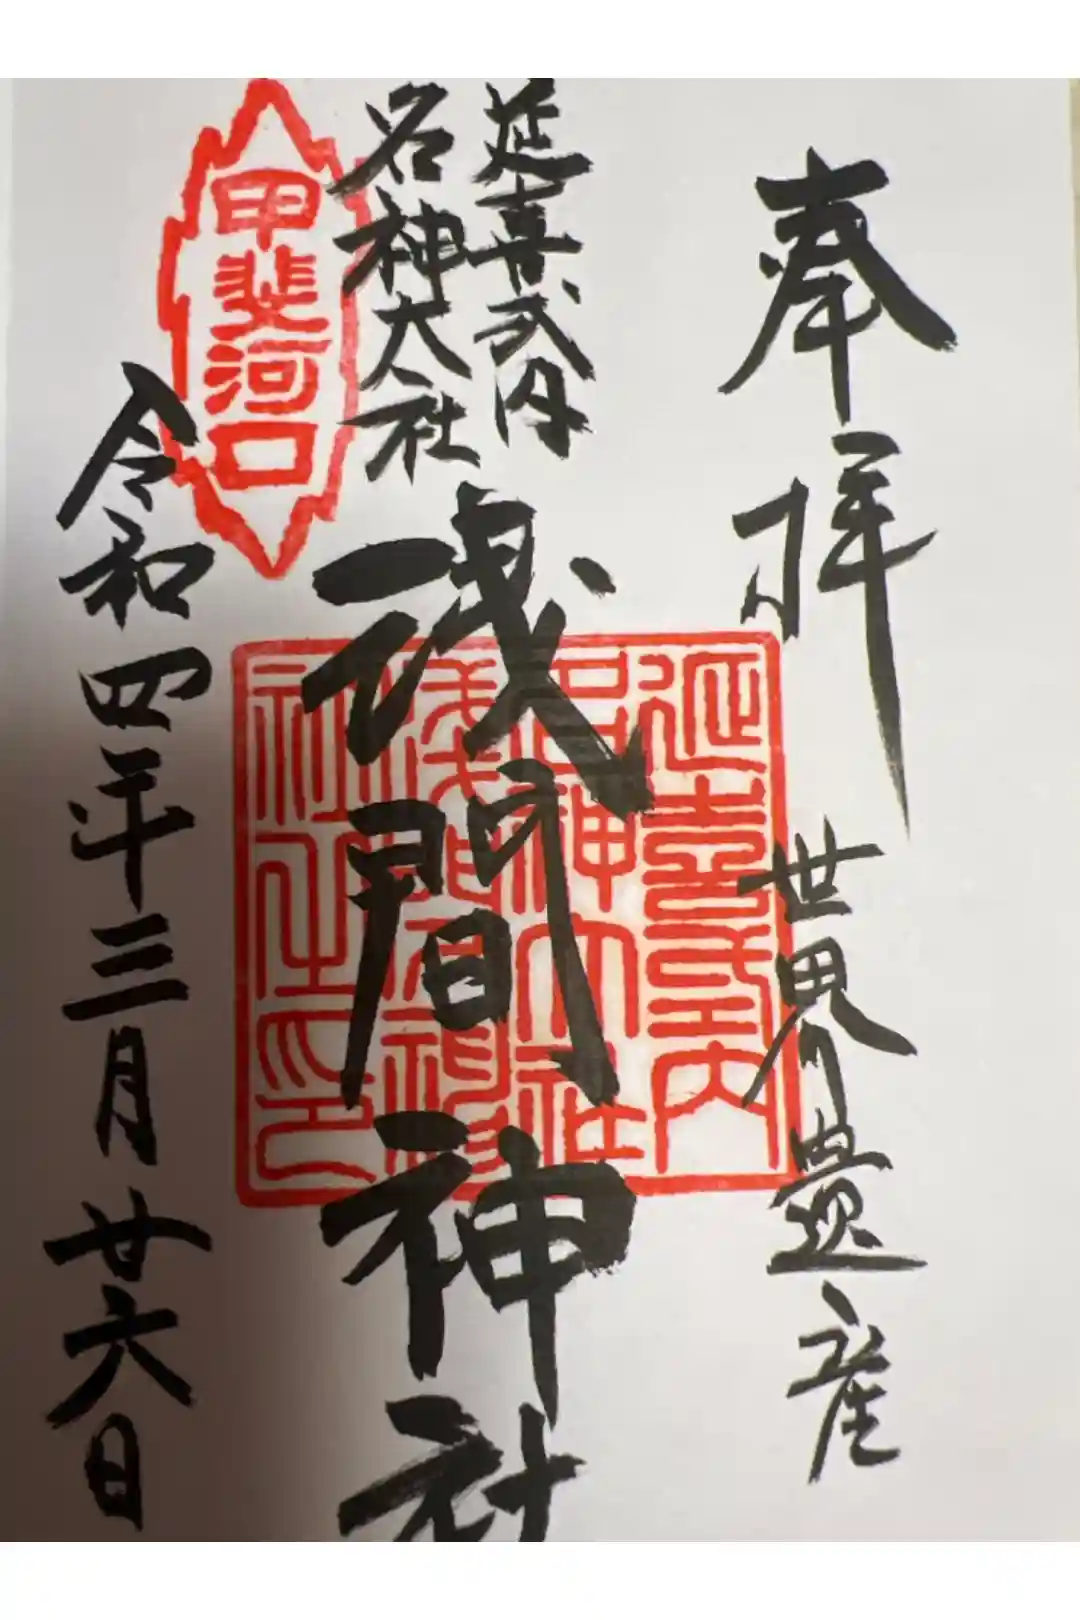 奉拝
世界遺産
延喜式内
名神大社
浅間神社
延喜式内
名神大社
浅間
社之印
甲斐河口
令和四年三月廿六日